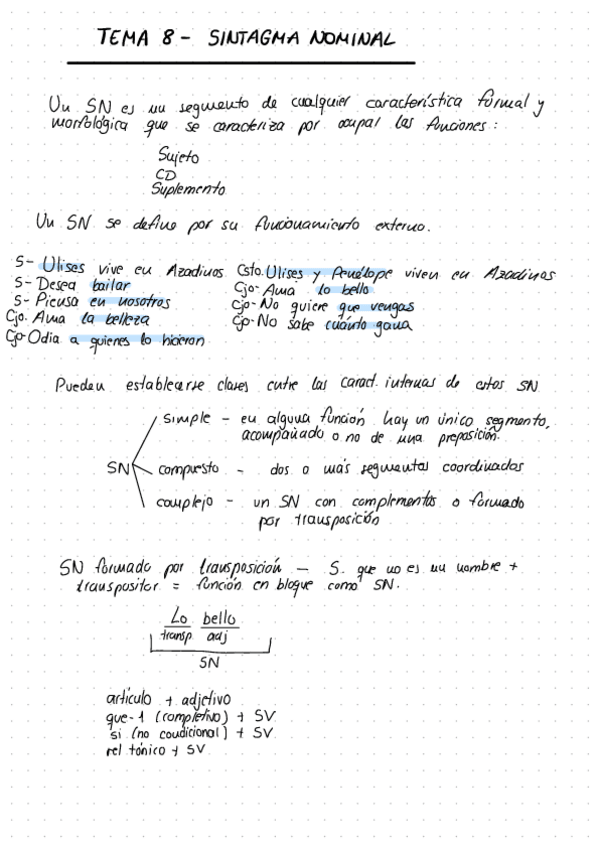 TEMA 8 - SINTAGMA NOMINAL
Un SN es un segmento de cualquier característica formal y
morfológica que se caracteriza por ocupal las funciones:
Sujeto
CD
Suplemento
Un SN se define por su funcionamiento externo.
S- Ulises vive en Azadinos
S- Desea bailar
S- Piensa en nosotros
Cjo. Ama la belleza
Cjo- Odia a quienes lo hicieron
Csto. Ulises y Penélope viven en Azadinos
Cjo- Ama lo bello
Cjo- No quiere que vengas
Cjo- No sabe cuánto gana
Pueden establecerse clases entre las caract. internas de estos SN
simple - en alguna función hay un único segmento,
acompañado o no de una preposición.
SN
compuesto - dos o más segmentos coordinados
complejo - un SN con complementos o formado
por transposición
SN formado por transposición - S. que no es un nombre +
transpositor = función en bloque como SN.
Lo bello
transp. adj
SN
artículo + adjetivo
que-1 (completivo) + SV
si (no condicional) + SV
rel tónico + SV